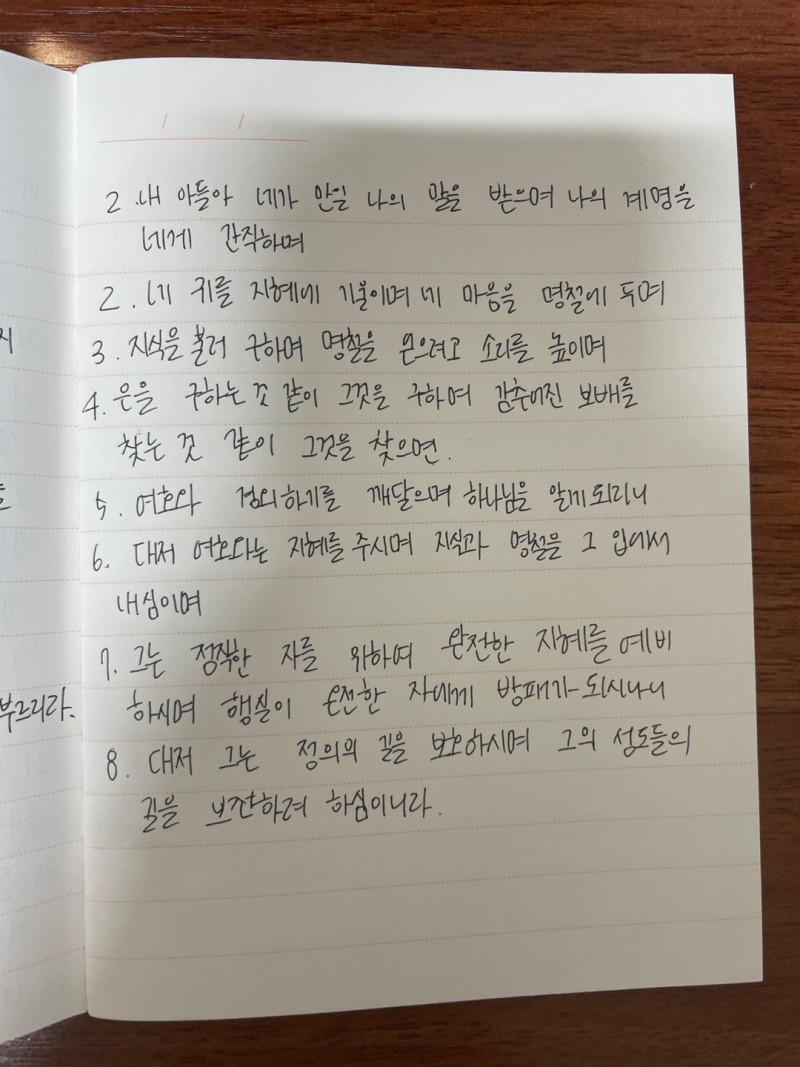 2. 내 아들아 네가 만일 나의 말을 받으며 나의 계명을
네게 간직하며
2. 네 귀를 지혜에 기울이며 네 마음을 명철에 두며
3. 지식을 불러 구하며 명철을 얻으려고 소리를 높이며
4. 은을 구하는 것 같이 그것을 구하며 감추어진 보배를
찾는 것 같이 그것을 찾으면.
5. 여호와 경외하기를 깨달으며 하나님을 알게 되리니
6. 대저 여호와는 지혜를 주시며 지식과 명철을 그 입에서
내심이며
7. 그는 정직한 자를 위하여 완전한 지혜를 예비
하시며 행실이 온전한 자에게 방패가 되시나니
8. 대저 그는 정의의 길을 보호하시며 그의 성도들의
길을 보전하려 하심이니라.
부르리라.